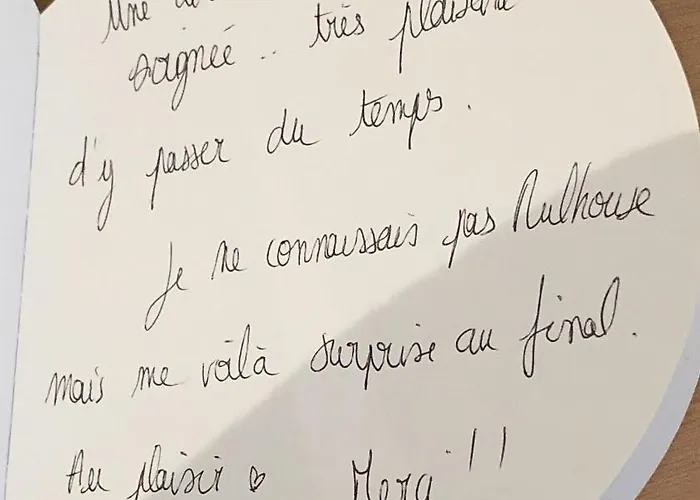 Une
soignée .. très
d'y passer du temps.
Je ne connaissais pas Mulhouse
mais me voilà surprise au final.
Au plaisir ♡ Merci !!